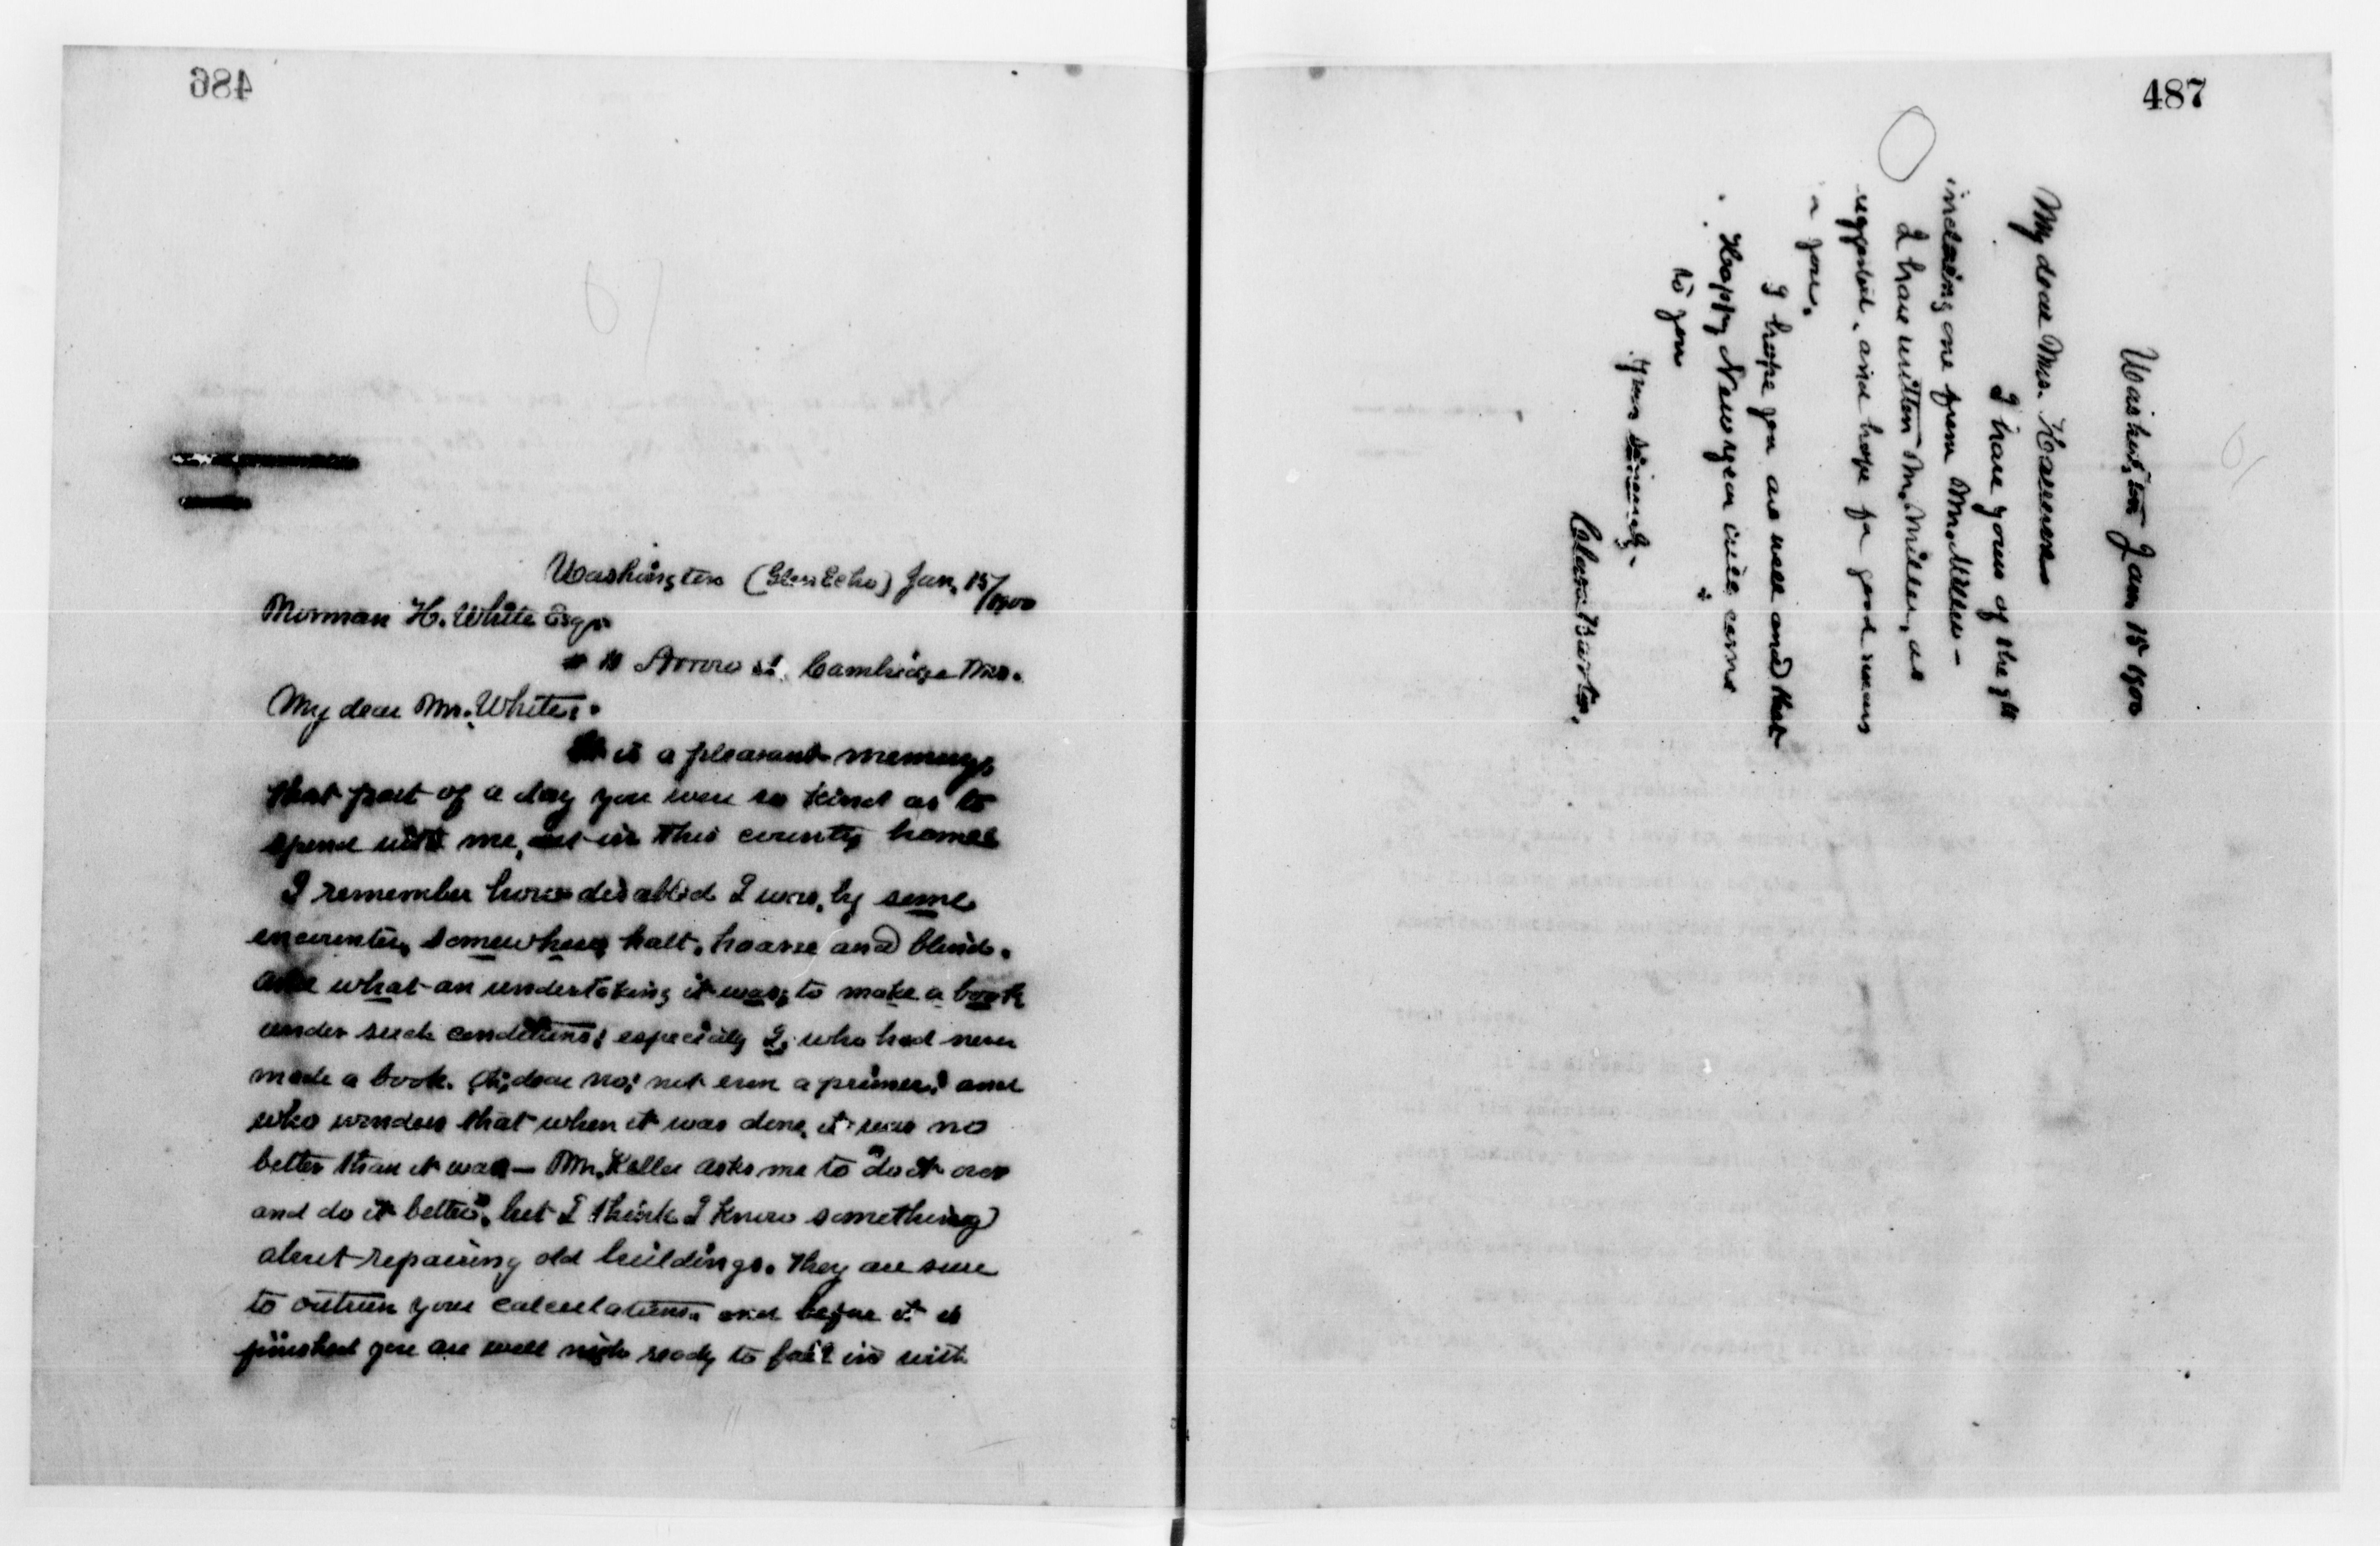 486
Washington (Glen Echo) Jan, 15/1900
Norman H. White Esq.
Arrow st. Cambridge Mss.
My dear Mr. White:
It is a pleasant memory,
that part of a day you were so kind as to
spend with me, out in this country home
I remember how disabled I was, by some
encounter, somewhere, halt, hoarse and blind.
and what an undertaking it was, to make a book
under such conditions; especially I, who had never
made a book. Oh, dear no; not even a primer; and
who wonders that when it was done, it was no
better than it was — Mr. Keller asks me to "do it over
and do it better", but I think I know something
about repairing old buildings. They are sure
to outrun your calculations. and before it is
finished you are well nigh ready to fall in with
487
Washington Jan 15 1900
My dear Mrs.
I have yours of the 9th
inclosing one from Mr. Miller —
I have written Mr. Miller, as
suggested, and hope for good news
for you.
I hope you are well and that
Happy New year will come
to you
Yours sincerely.
Clara Barton.